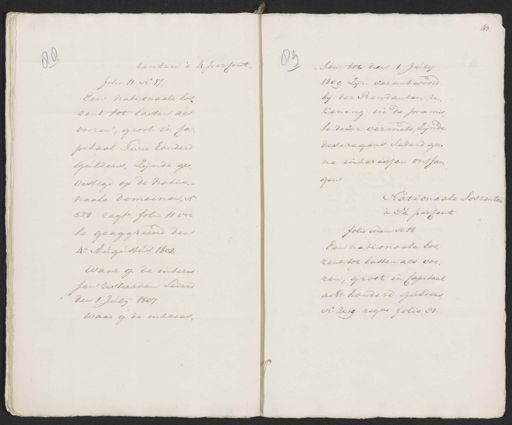 88
renten à 4 percent
folio 11 N 87.
Een nationaale los
rent tot lasten als
vooren, groot in ca
pitaal Twee honderd
Guldens, zijnde ge
vestigd op de natio
naale domeinen, N
538 regr folio 11 ver
so geaggreeerd den
4 Augustus 1802
Waar op de interes
sen verscheenen sedert
den 1 July 1807
Waar op de interes,
89
sen tot den 1 July
1809 zijn verantwoord
by der Rendanten re
kening in de praemis
se deezer vermeld, zijnde
deswegens sedert gee
ne interessen ontfan
gen
Nationaale Losrenten
à 3½ percent
folio
Een nationaale los
rent tot lasten als voo
ren, groot in Capitaal
acht honderd Guldens
N 2019 regr folio 31